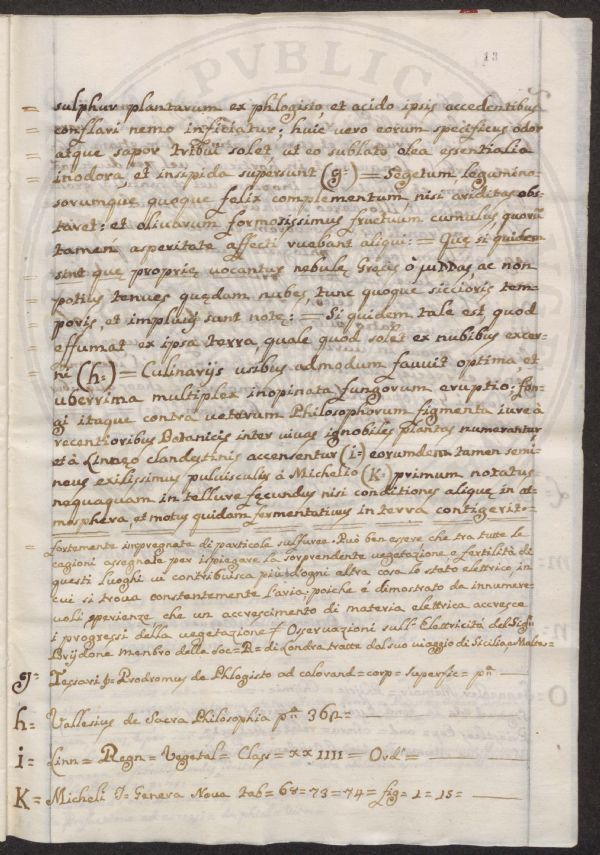 PVBLICA
13
= sulphur plantarum ex phlogisto, et acido ipsis accedentibus
= conflari nemo inficiatur; huic vero eorum specificus odor
= atque sapor tribui solet, ut eo sublato olea essentialia
= inodora, et insipida supersunt (g=) = Segetum legumino-
sorumque quoque felix complementum nisi ariditas obs-
taret: et olivarum formosissimus fructuum cumulus, quorū
tamen asperitate affecti ruebant aliqui: = Quę si quidem
= sint quę proprię vocantur nebulę Gręcis ò μυδδας, ac non
= potius tenues quędam nubes, tunc quoque siccioris tem-
= poris, et impluvij sunt notę: = Si quidem tale est, quod
= effumat ex ipsa terra quale quod solet ex nubibus excer-
= ni (h=) = Culinarijs usibus admodum favuit optima, et
uberrima multiplex inopinata fungorum eruptio: fon-
gi itaque contra veterum Philosophorum figmenta iure à
recentioribus Botanicis inter vivas ignobiles plantas numerantur,
et à Linnęo clandestinis accensentur (i=) eorumdem tamen semi-
neus exilissimus pulvisculus à Michelio (K=) primum notatus
nequaquam in tellure fęcundus nisi conditiones alique in at-
mosphera, et motus quidam fermentativus in terra contigerit=
= fortemente impregnata di particole sulfuree. Può ben essere che tra tutte le
cagioni assegnate per ispiegare la sorprendente vegetazione e fertilità di
questi luoghi vi contribuisca più d'ogni altra cosa lo stato elettrico, in
cui si trova constentemente l'aria; poiche é dimostrato da innumere-
voli sperienze che un accrescimento di materia elettrica accresce
i progressi della vegetazione = Osservazioni sull'Elettricità del Sigr
Brijdone menbro della Soc=R= di Londra tratte dal suo viaggio di Sicilia e Malta=
g= Tessari Prodromus de Phlogisto ad colorand= corp= superfic= pa
h= Vallesius de Sacra Philosophia pa 362=
i= Linn= Regn= Vegetal= Class= xxIIII= Ord=
K= Micheli Genera Nova tab= 68=73=74= fig= 1= 15=